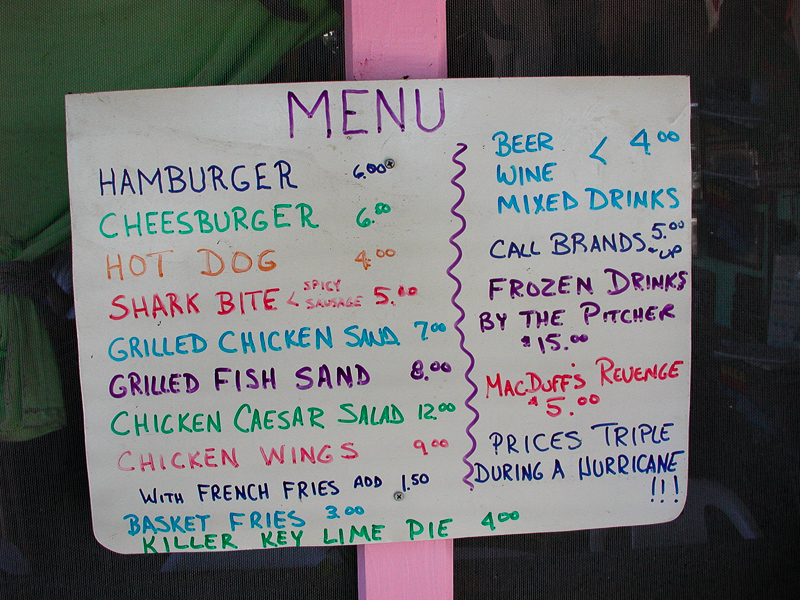 MENU
HAMBURGER 6.00
CHEESBURGER 6.00
HOT DOG 4.00
SHARK BITE < SPICY SAUSAGE 5.00
GRILLED CHICKEN SAND. 7.00
GRILLED FISH SAND 8.00
CHICKEN CAESAR SALAD 12.00
CHICKEN WINGS 9.00
WITH FRENCH FRIES ADD 1.50
BASKET FRIES 3.00
KILLER KEY LIME PIE 4.00
BEER < 4.00
WINE
MIXED DRINKS
CALL BRANDS 5.00 ~UP
FROZEN DRINKS
BY THE PITCHER
$15.00
MACDUFF'S REVENGE
$5.00
PRICES TRIPLE
DURING A HURRICANE
!!!